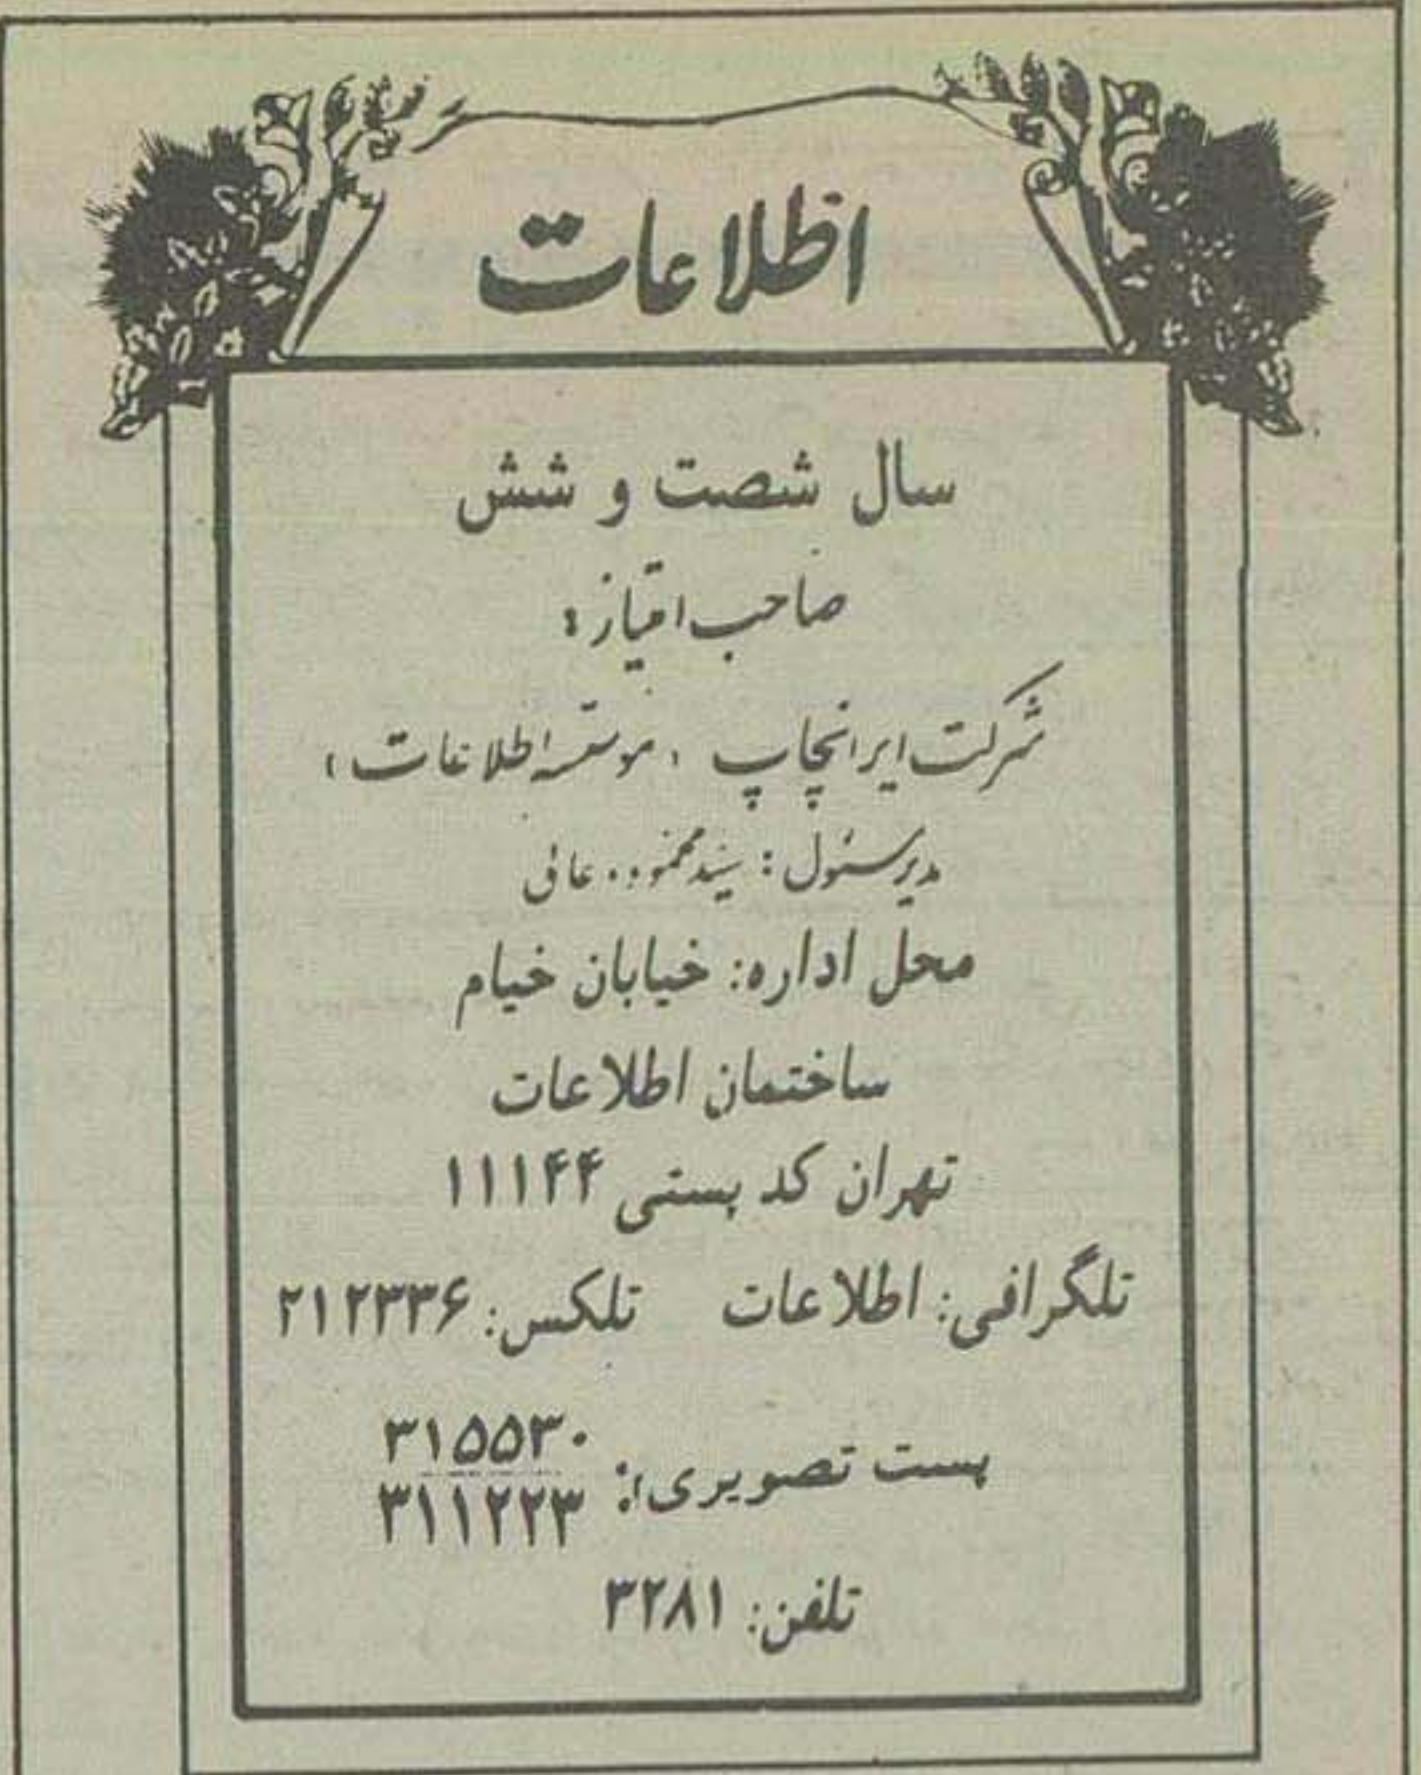 اطلاعات
سال شصت و شش
صاحب امتیاز:
شرکت ایرانچاپ «موسسه اطلاعات»
مدیر مسئول: سید محمود دعائی
محل اداره: خیابان خیام
ساختمان اطلاعات
تهران کد پستی ۱۱۱۴۴
تلگرافی: اطلاعات تلکس: ۲۱۲۳۳۶
پست تصویری: ۳۱۵۵۳۰
۳۱۱۲۲۳
تلفن: ۳۲۸۱